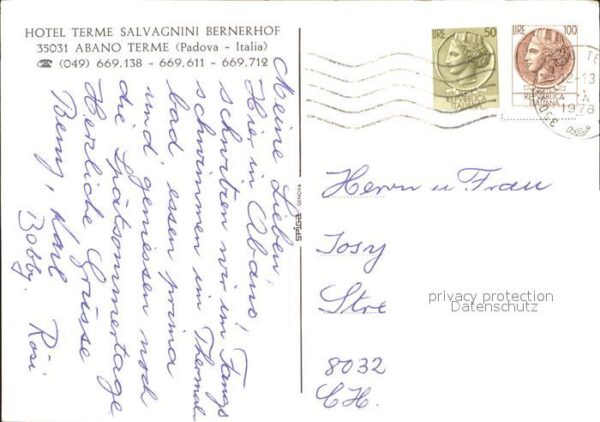 HOTEL TERME SALVAGNINI BERNERHOF
35031 ABANO TERME (Padova - Italia)
☎ (049) 669.138 - 669.611 - 669.712
Meine Lieben!
Hier in Abano!
schwitzen wir im Fango
schwimmen im Thermal
bad essen prima
und geniessen noch
die Spätsommertage
Herzliche Grüsse
Beny, Karl
Bobby. Rösi
LIRE 50
REPUBBLICA
ITALIANA
LIRE 100
REPUBBLICA
ITALIANA
1978
Herrn u Frau
Josy
Stre
8032
CH.
privacy protection
Datenschutz